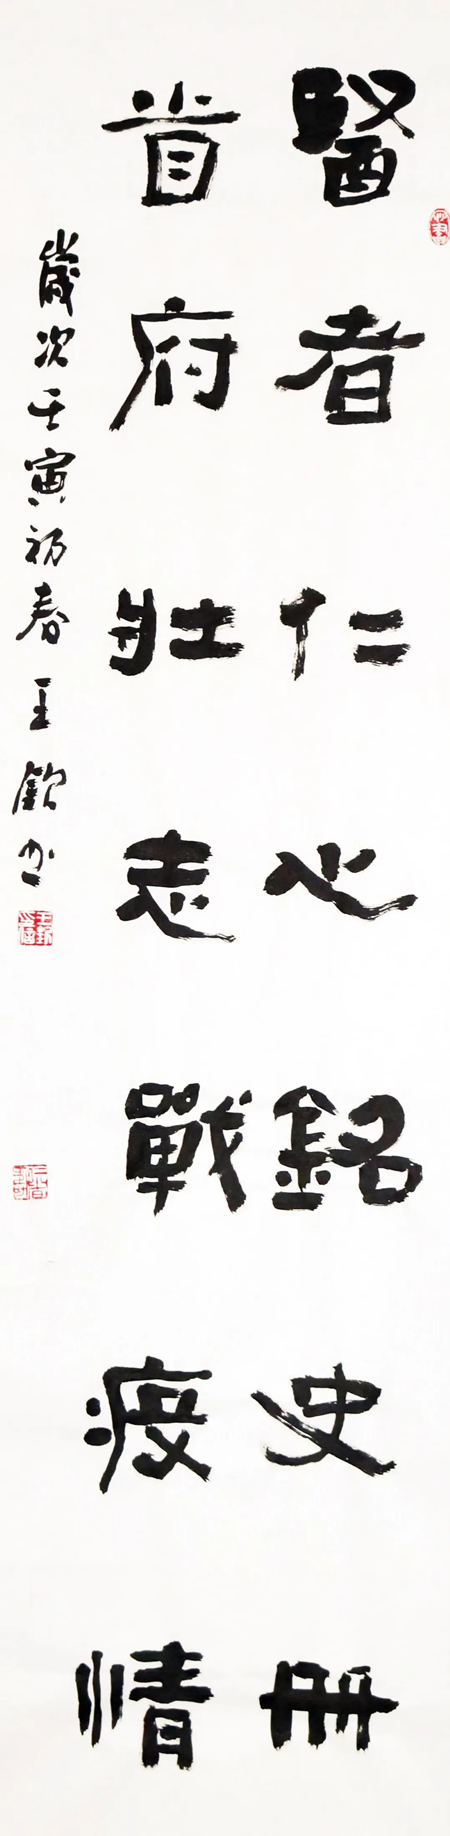 醫者仁心銘史冊
首府壯志戰疫情
歲次壬寅初春王欽书